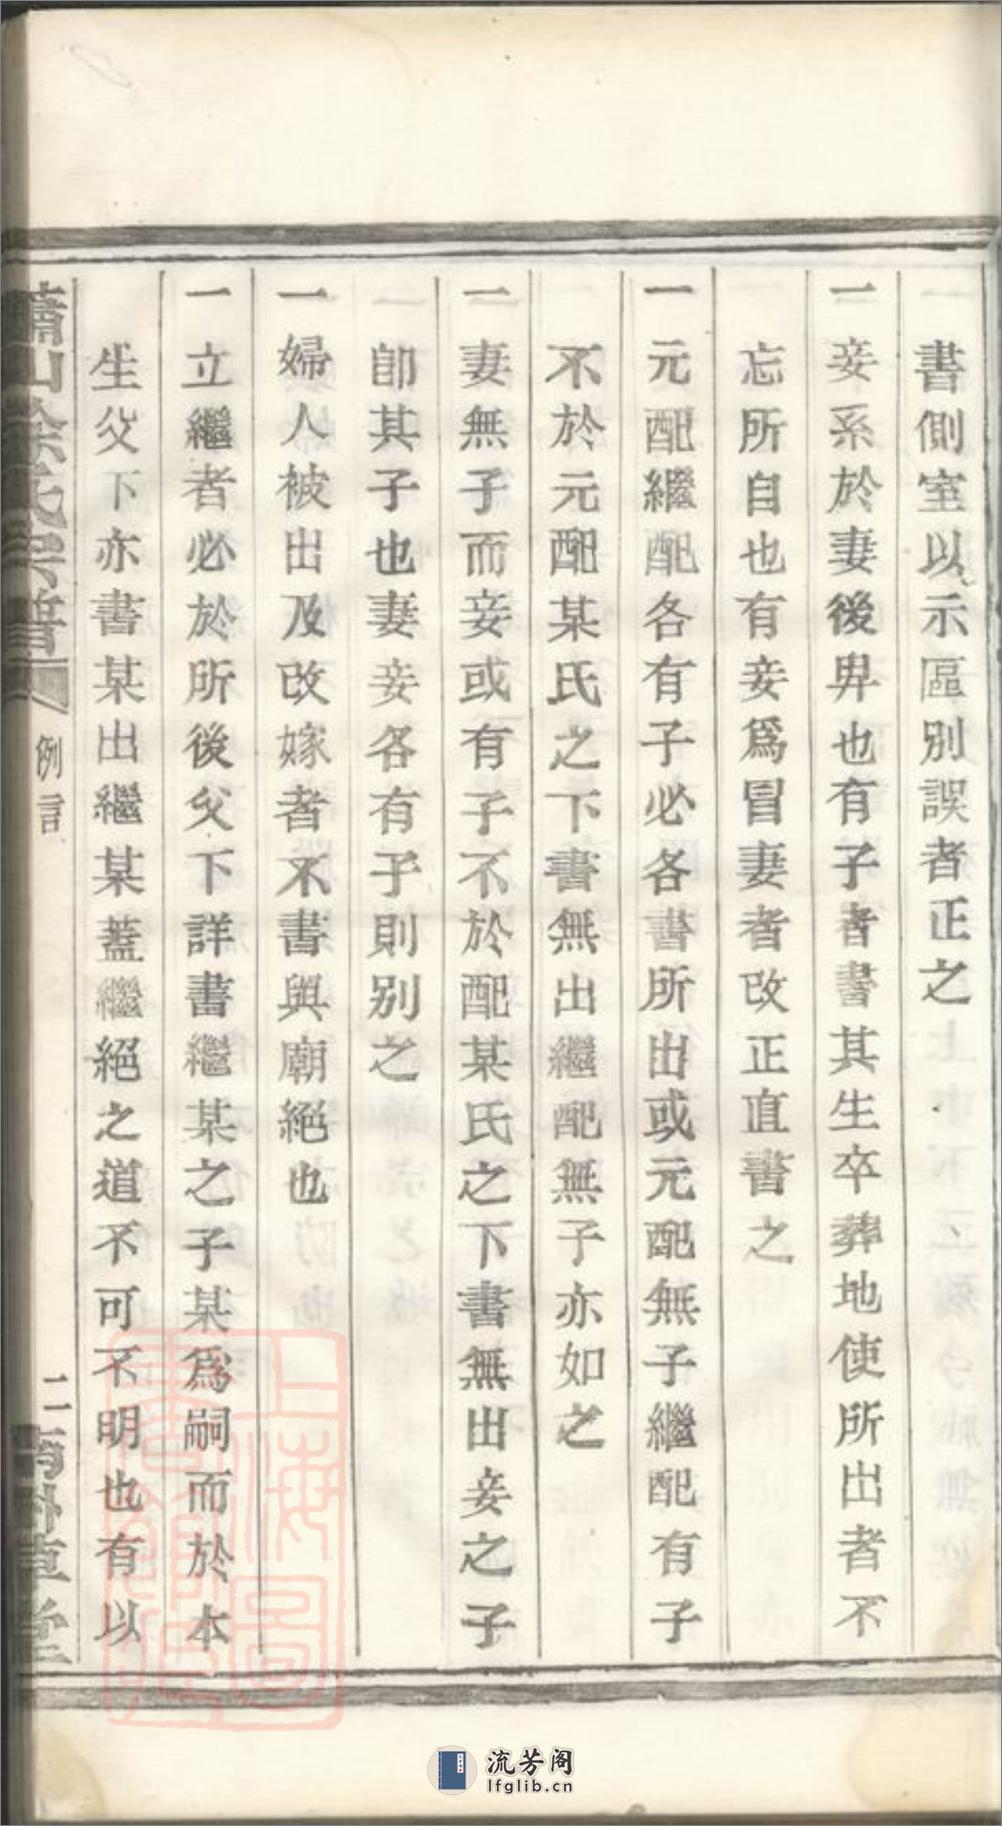 書側室以示區別誤者正之
一妾系於妻後畀也有子者書其生卒葬地使所出者不
忘所自也有妾爲冒妻者改正直書之
一元配繼配各有子必各書所出或元配無子繼配有子
不於元配某氏之下書無出繼配無子亦如之
一妻無子而妾或有子不於配某氏之下書無出妾之子
卽其子也妻妾各有子則別之
一婦人被出及改嫁者不書與廟絕也
一立繼者必於所後父下詳書繼某之子某爲嗣而於本
生父下亦書某出繼某蓋繼絕之道不可不明也有以
蕭山徐氏宗譜
例言
二
南州草堂
上海圖書館藏
流芳阁
lfglib.cn